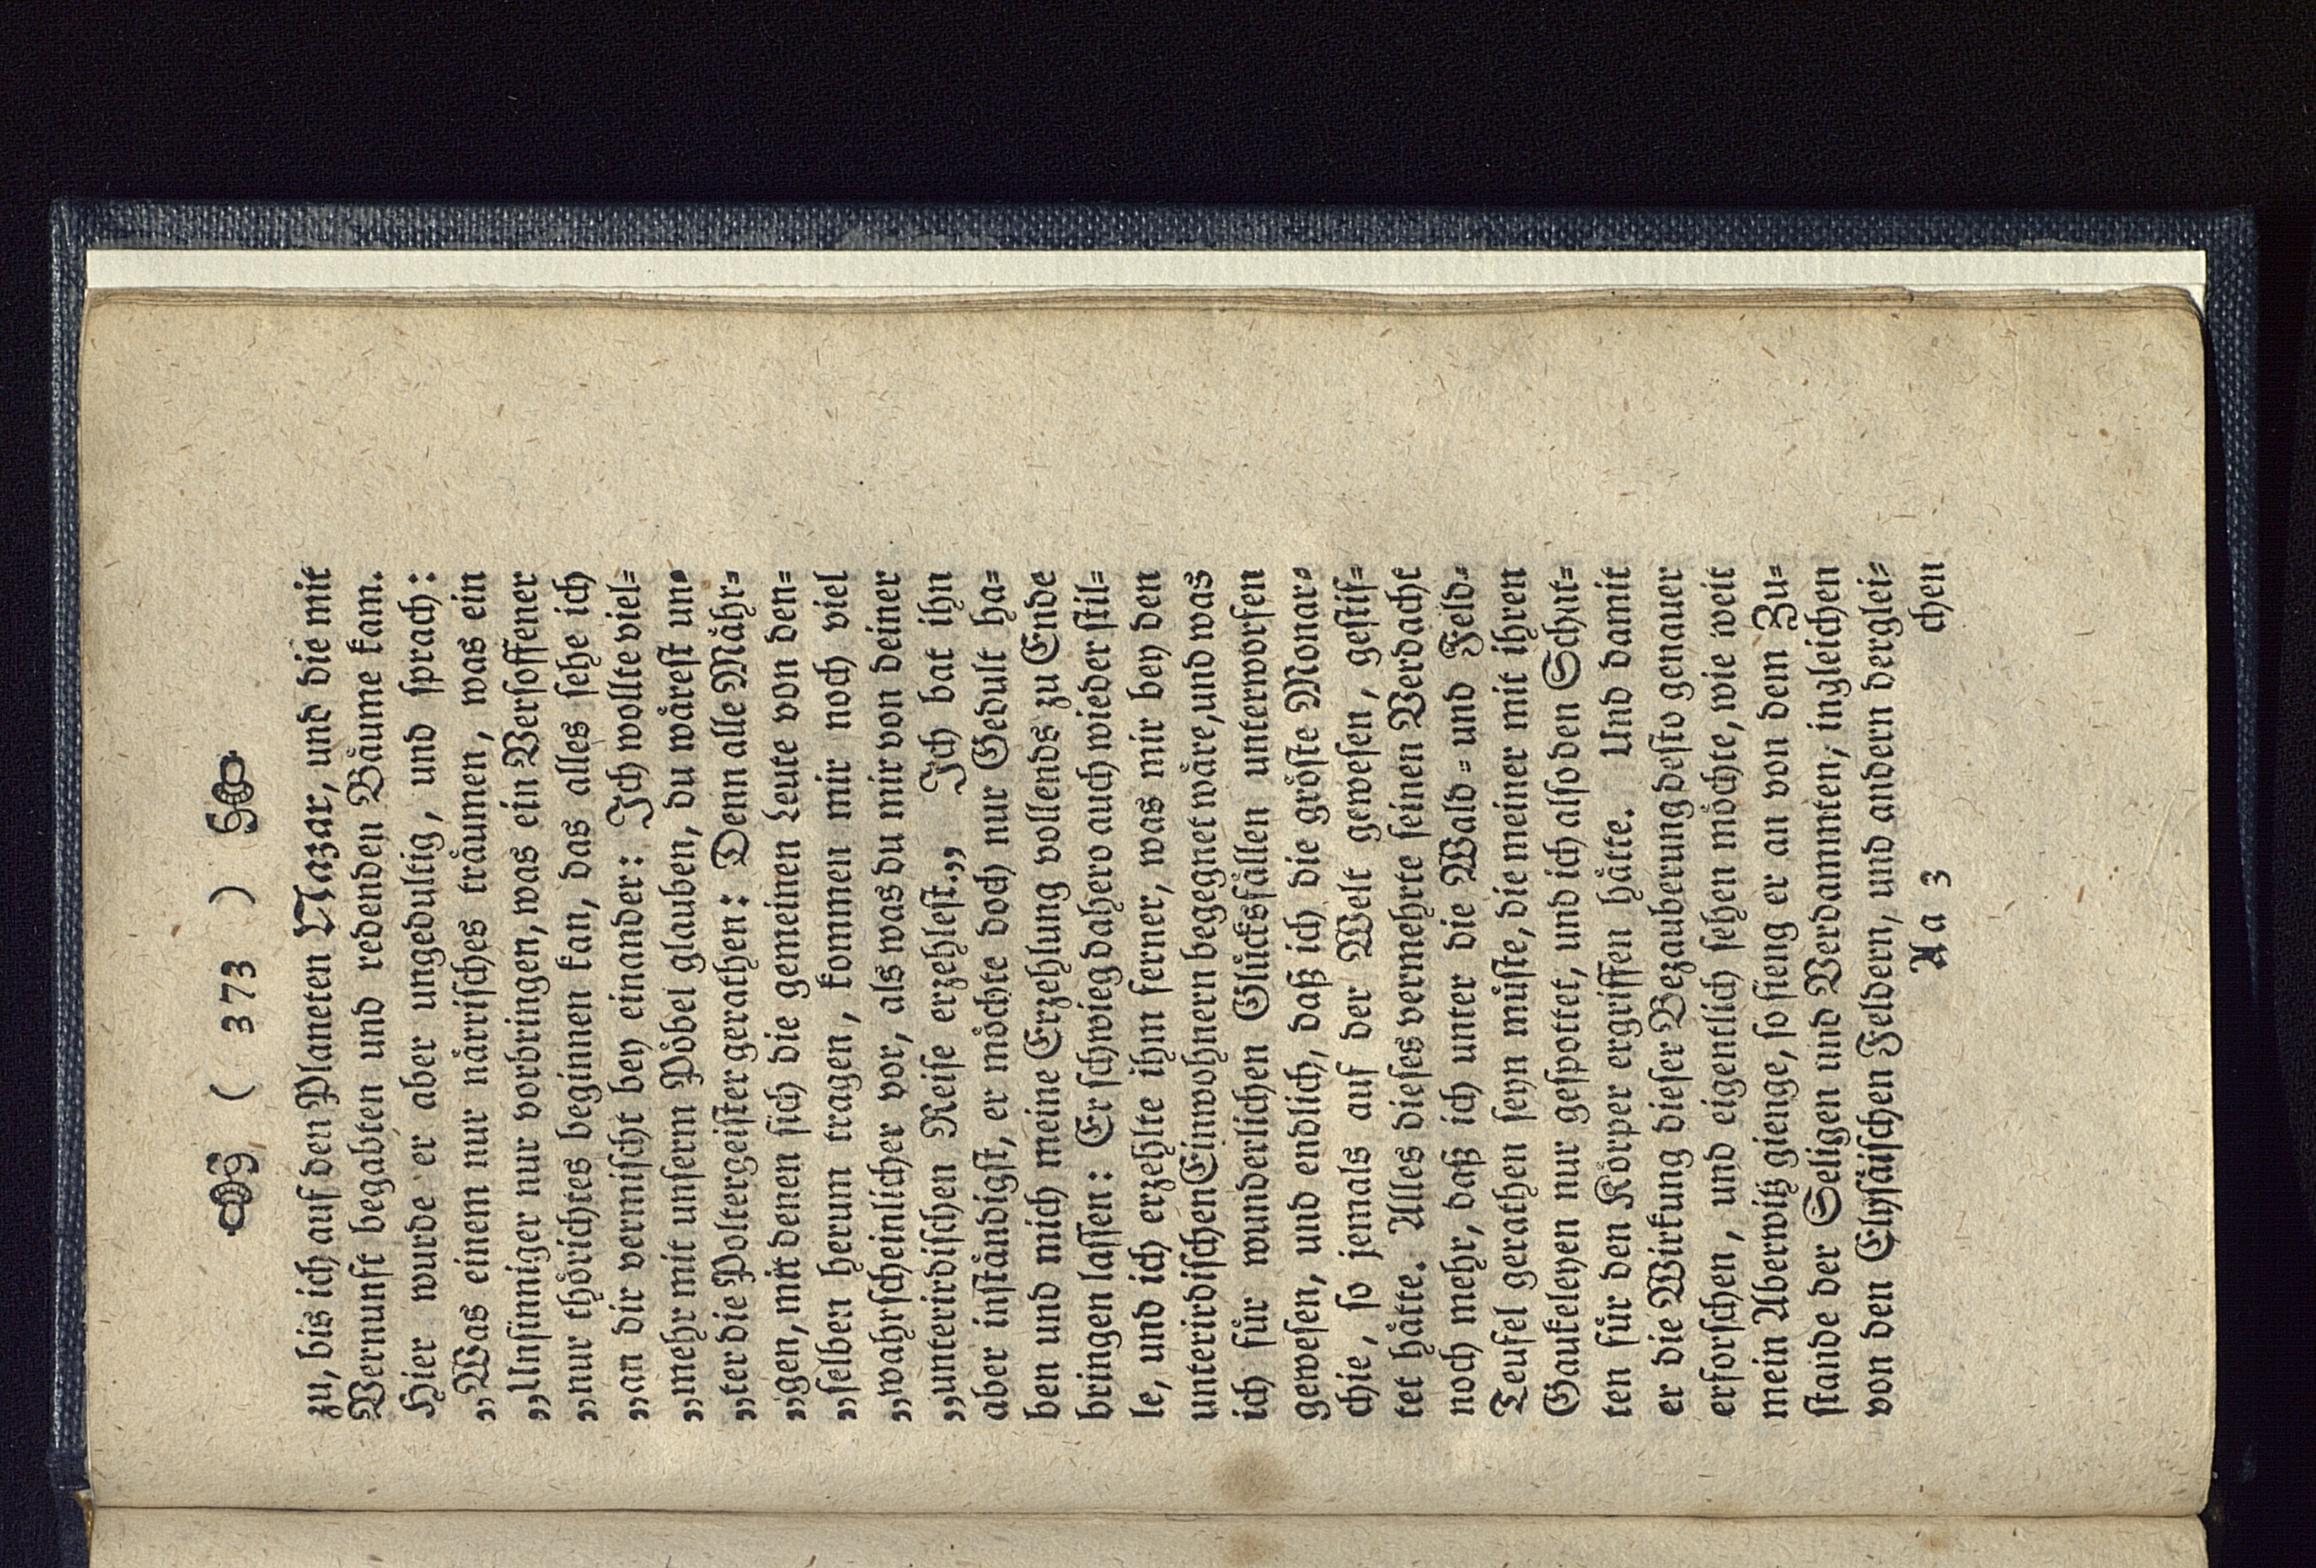 ( 373 )
zu, bis ich auf den Planeten Nazar, und die mit
Vernunft begabten und redenden Bäume kam.
Hier wurde er aber ungedultig, und sprach:
„Was einem nur närrisches träumen, was ein
„Unsinniger nur vorbringen, was ein Versoffener
„nur thörichtes beginnen kan, das alles sehe ich
„an dir vermischt bey einander: Ich wollte viel=
„mehr mit unserm Pöbel glauben, du wärest un=
„ter die Poltergeister gerathen: Denn alle Mähr=
„gen, mit denen sich die gemeinen Leute von den=
„selben herum tragen, kommen mir noch viel
„wahrscheinlicher vor, als was du mir von deiner
„unterirdischen Reise erzehlest.„ Ich bat ihn
aber inständigst, er möchte doch nur Gedult ha=
ben und mich meine Erzehlung vollends zu Ende
bringen lassen: Er schwieg dahero auch wieder stil=
le, und ich erzehlte ihm ferner, was mir bey den
unterirdischen Einwohnern begegnet wäre, und was
ich für wunderlichen Glücksfällen unterworfen
gewesen, und endlich, daß ich die gröste Monar=
chie, so jemals auf der Welt gewesen, gestif=
tet hätte. Alles dieses vermehrte seinen Verdacht
noch mehr, daß ich unter die Wald= und Feld=
Teufel gerathen seyn müste, die meiner mit ihren
Gaukeleyen nur gespottet, und ich also den Schat=
ten für den Körper ergriffen hätte. Und damit
er die Wirkung dieser Bezauberung desto genauer
erforschen, und eigentlich sehen möchte, wie weit
mein Aberwitz gienge, so fieng er an von dem Zu=
stande der Seligen und Verdammten, ingleichen
von den Elysäischen Feldern, und andern derglei=
Aa 3
chen